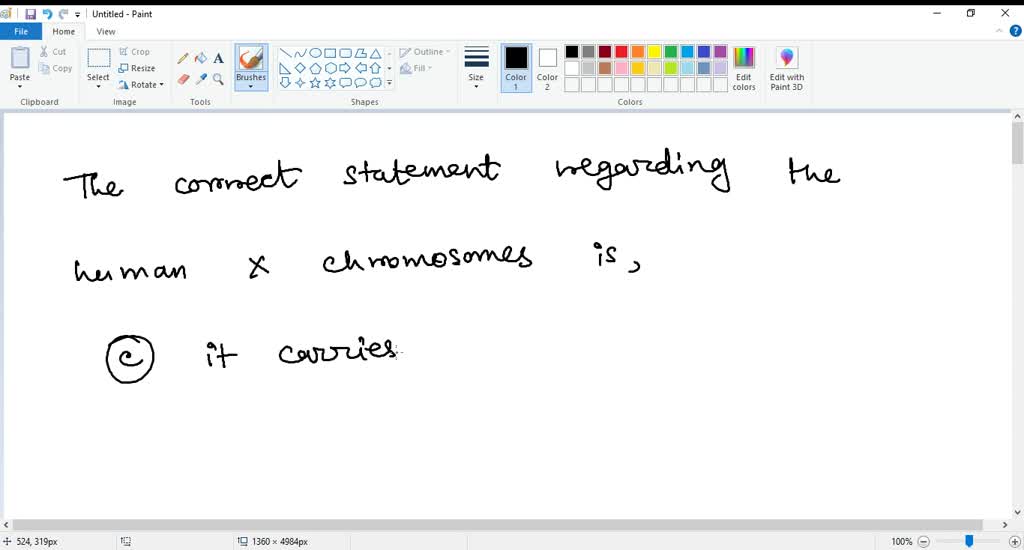 Untitled - Paint
File Home View
Paste Cut Copy Select Crop Resize Rotate A Brushes Outline Fill Size Color 1 Color 2 Edit colors Edit with Paint 3D
Clipboard Image Tools Shapes Colors
The correct statement regarding the
human X chromosomes is,
c it carries
524, 319px 1360 × 4984px 100%